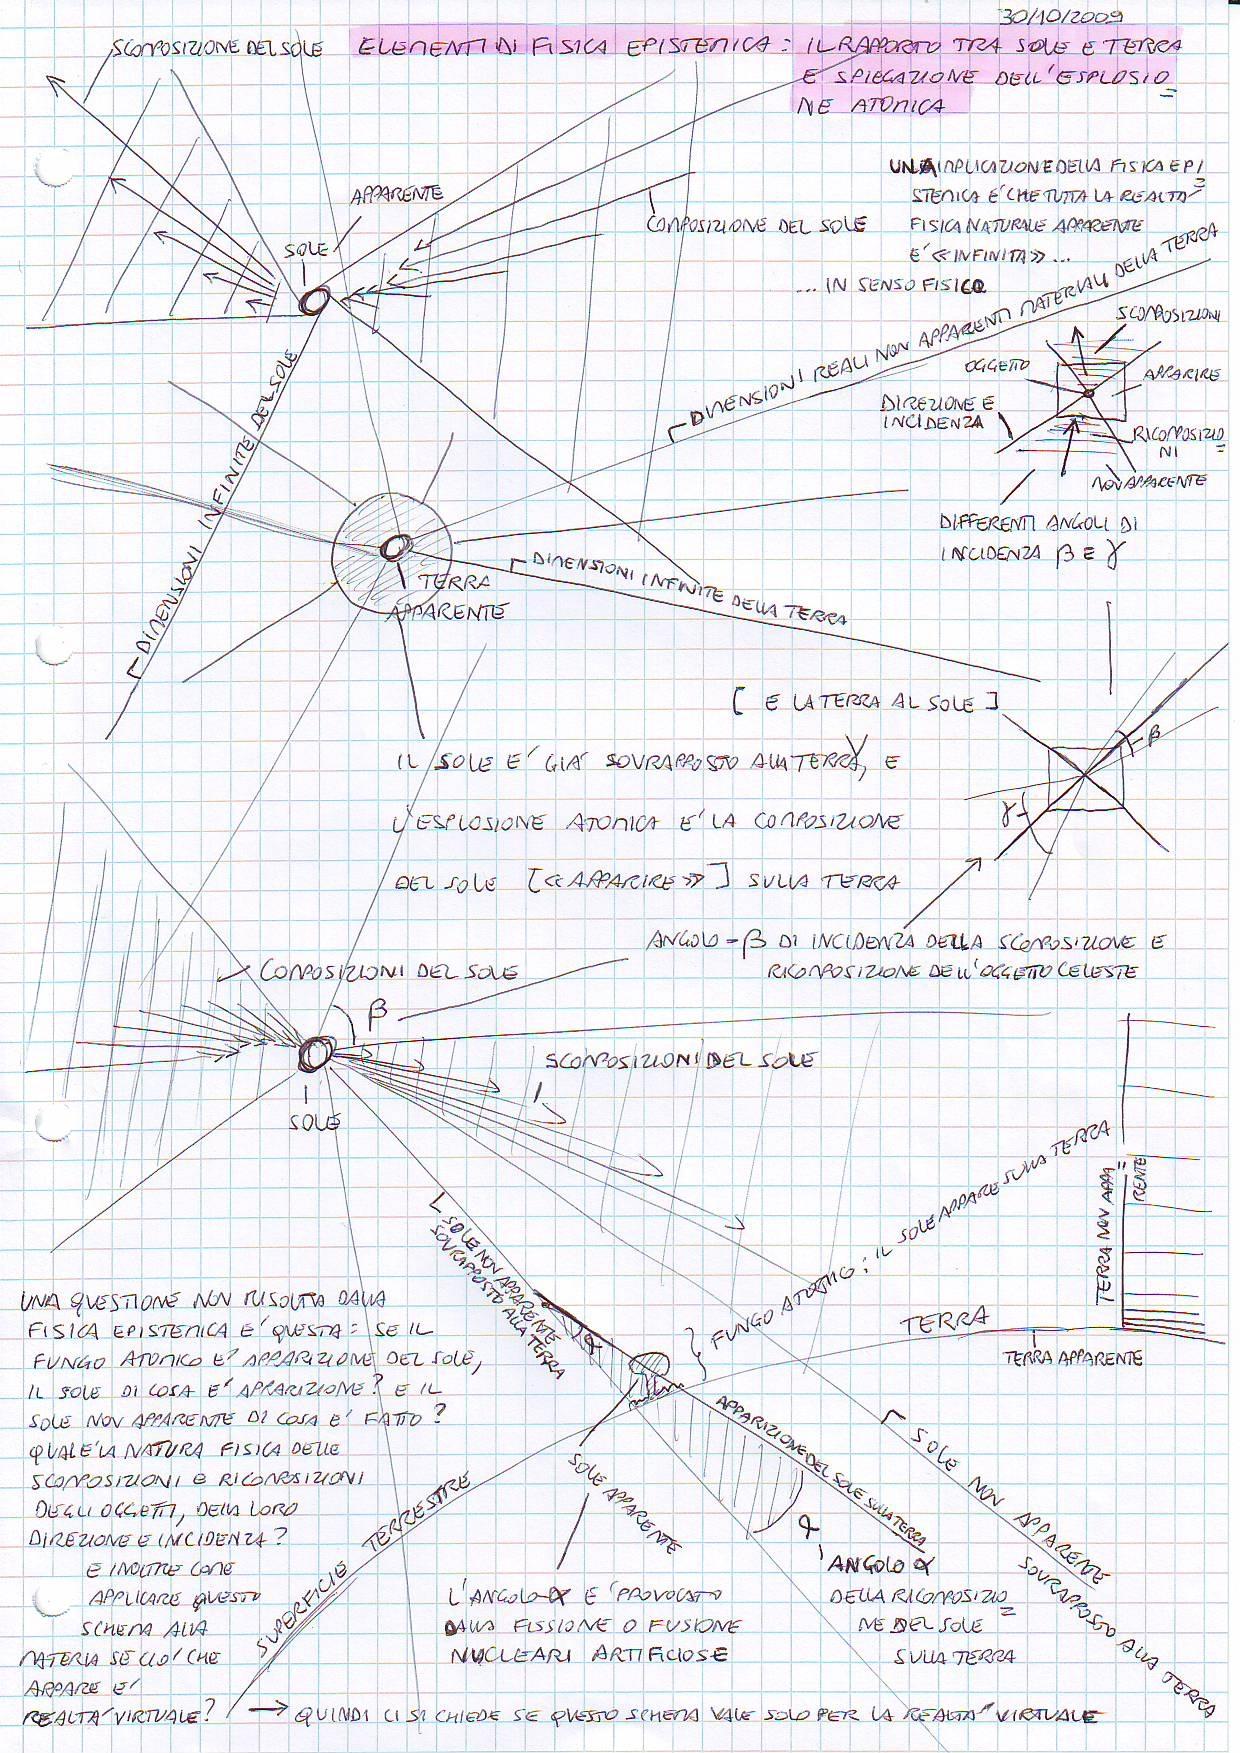 30/10/2009
SCOMPOSIZIONE DEL SOLE
ELEMENTI DI FISICA EPISTEMICA: IL RAPPORTO TRA SOLE E TERRA
E SPIEGAZIONE DELL'ESPLOSIO
NE ATOMICA
UN'IMPLICAZIONE DELLA FISICA EPI
STEMICA E' CHE TUTTA LA REALTA'
FISICA NATURALE APPARENTE
E' «INFINITA» ...
... IN SENSO FISICO
APPARENTE
SOLE
COMPOSIZIONE DEL SOLE
DIMENSIONI REALI NON APPARENTI MATERIALI DELLA TERRA
SCOMPOSIZIONI
OGGETTO
APPARIRE
DIREZIONE E
INCIDENZA
RICOMPOSIZIO
NI
NON APPARENTE
DIFFERENTI ANGOLI DI
INCIDENZA β E γ
DIMENSIONI INFINITE DEL SOLE
TERRA
APPARENTE
DIMENSIONI INFINITE DELLA TERRA
[ E LA TERRA AL SOLE ]
IL SOLE E' GIA' SOVRAPPOSTO ALLA TERRA, E
L'ESPLOSIONE ATOMICA E' LA COMPOSIZIONE
DEL SOLE [«APPARIRE»] SULLA TERRA
β
γ
ANGOLO-β DI INCIDENZA DELLA SCOMPOSIZIONE E
RICOMPOSIZIONE DELL'OGGETTO CELESTE
COMPOSIZIONI DEL SOLE
β
SCOMPOSIZIONI DEL SOLE
SOLE
SOLE NON APPARENTE
SOVRAPPOSTO ALLA TERRA
α
FUNGO ATOMICO: IL SOLE APPARE SULLA TERRA
TERRA NON APPA
RENTE
TERRA
TERRA APPARENTE
UNA QUESTIONE NON RISOLTA DALLA
FISICA EPISTEMICA E' QUESTA: SE IL
FUNGO ATOMICO E' APPARIZIONE DEL SOLE,
IL SOLE DI COSA E' APPARIZIONE? E IL
SOLE NON APPARENTE DI COSA E' FATTO?
QUAL E' LA NATURA FISICA DELLE
SCOMPOSIZIONI E RICOMPOSIZIONI
DEGLI OGGETTI, DELLA LORO
DIREZIONE E INCIDENZA?
E INOLTRE COME
APPLICARE QUESTO
SCHEMA ALLA
MATERIA SE CIO' CHE
APPARE E'
REALTA' VIRTUALE?
→ QUINDI CI SI CHIEDE SE QUESTO SCHEMA VALE SOLO PER LA REALTA' VIRTUALE
SUPERFICIE TERRESTRE
SOLE APPARENTE
APPARIZIONE DEL SOLE SULLA TERRA
α
L'ANGOLO-α E' PROVOCATO
DALLA FISSIONE O FUSIONE
NUCLEARI ARTIFICIOSE
ANGOLO α
DELLA RICOMPOSIZIO
NE DEL SOLE
SULLA TERRA
SOLE NON APPARENTE
SOVRAPPOSTO ALLA TERRA